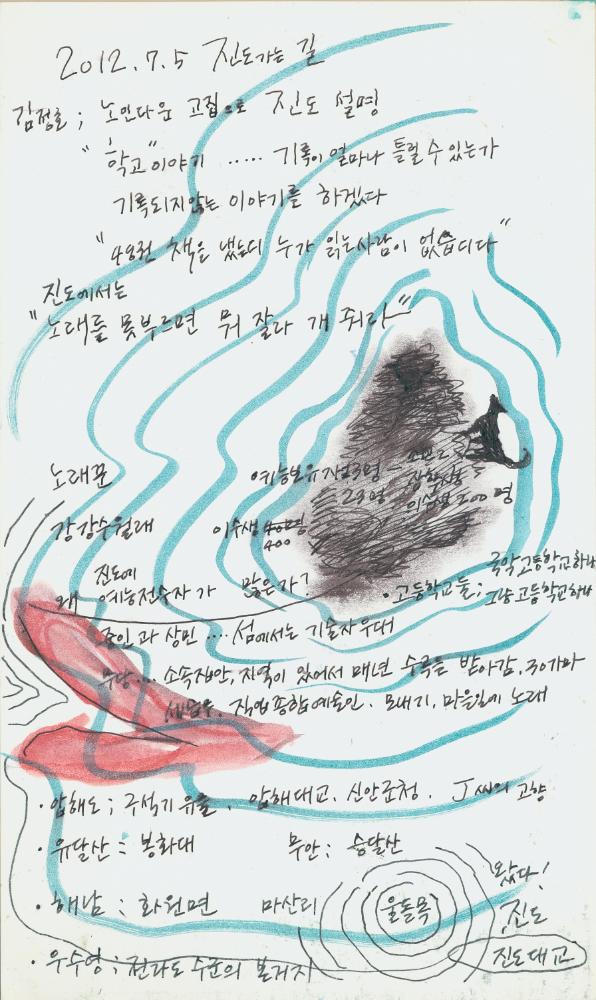 2012.7.5 진도가는 길
김정호 ; 노인다운 고집으로 진도 설명
"학교" 이야기 ..... 기록이 얼마나 틀릴 수 있는가
기록되지않는 이야기를 하겠다
"49권 책을 냈는데 누가 읽는사람이 없습디다"
진도에서는
"노래를 못부르면 뭐 잘라 개 줘라"
노래꾼 예능보유자 23명
23명 이수생 200명
강강수월래 이수생 40명
400
왜 진도에 예능전수자가 많은가?
· 고등학교 둘; 국악고등학교하나
그냥 고등학교하나
중인과 상민 .... 섬에서는 기술자우대
무당.... 소속집안, 지역이 있어서 매년 곡을 받아감. 30가마
세습무. 직업종합예술인. 모내기, 마을일에 노래
· 압해도 ; 구석기 유물. 압해대교. 신안군청. J씨의 고향
· 유달산 : 봉화대 무안 ; 승달산
· 해남 : 화원면 마산리 울돌목
왔다!
진도
진도대교
· 우수영 ; 전라도 수군의 본거지